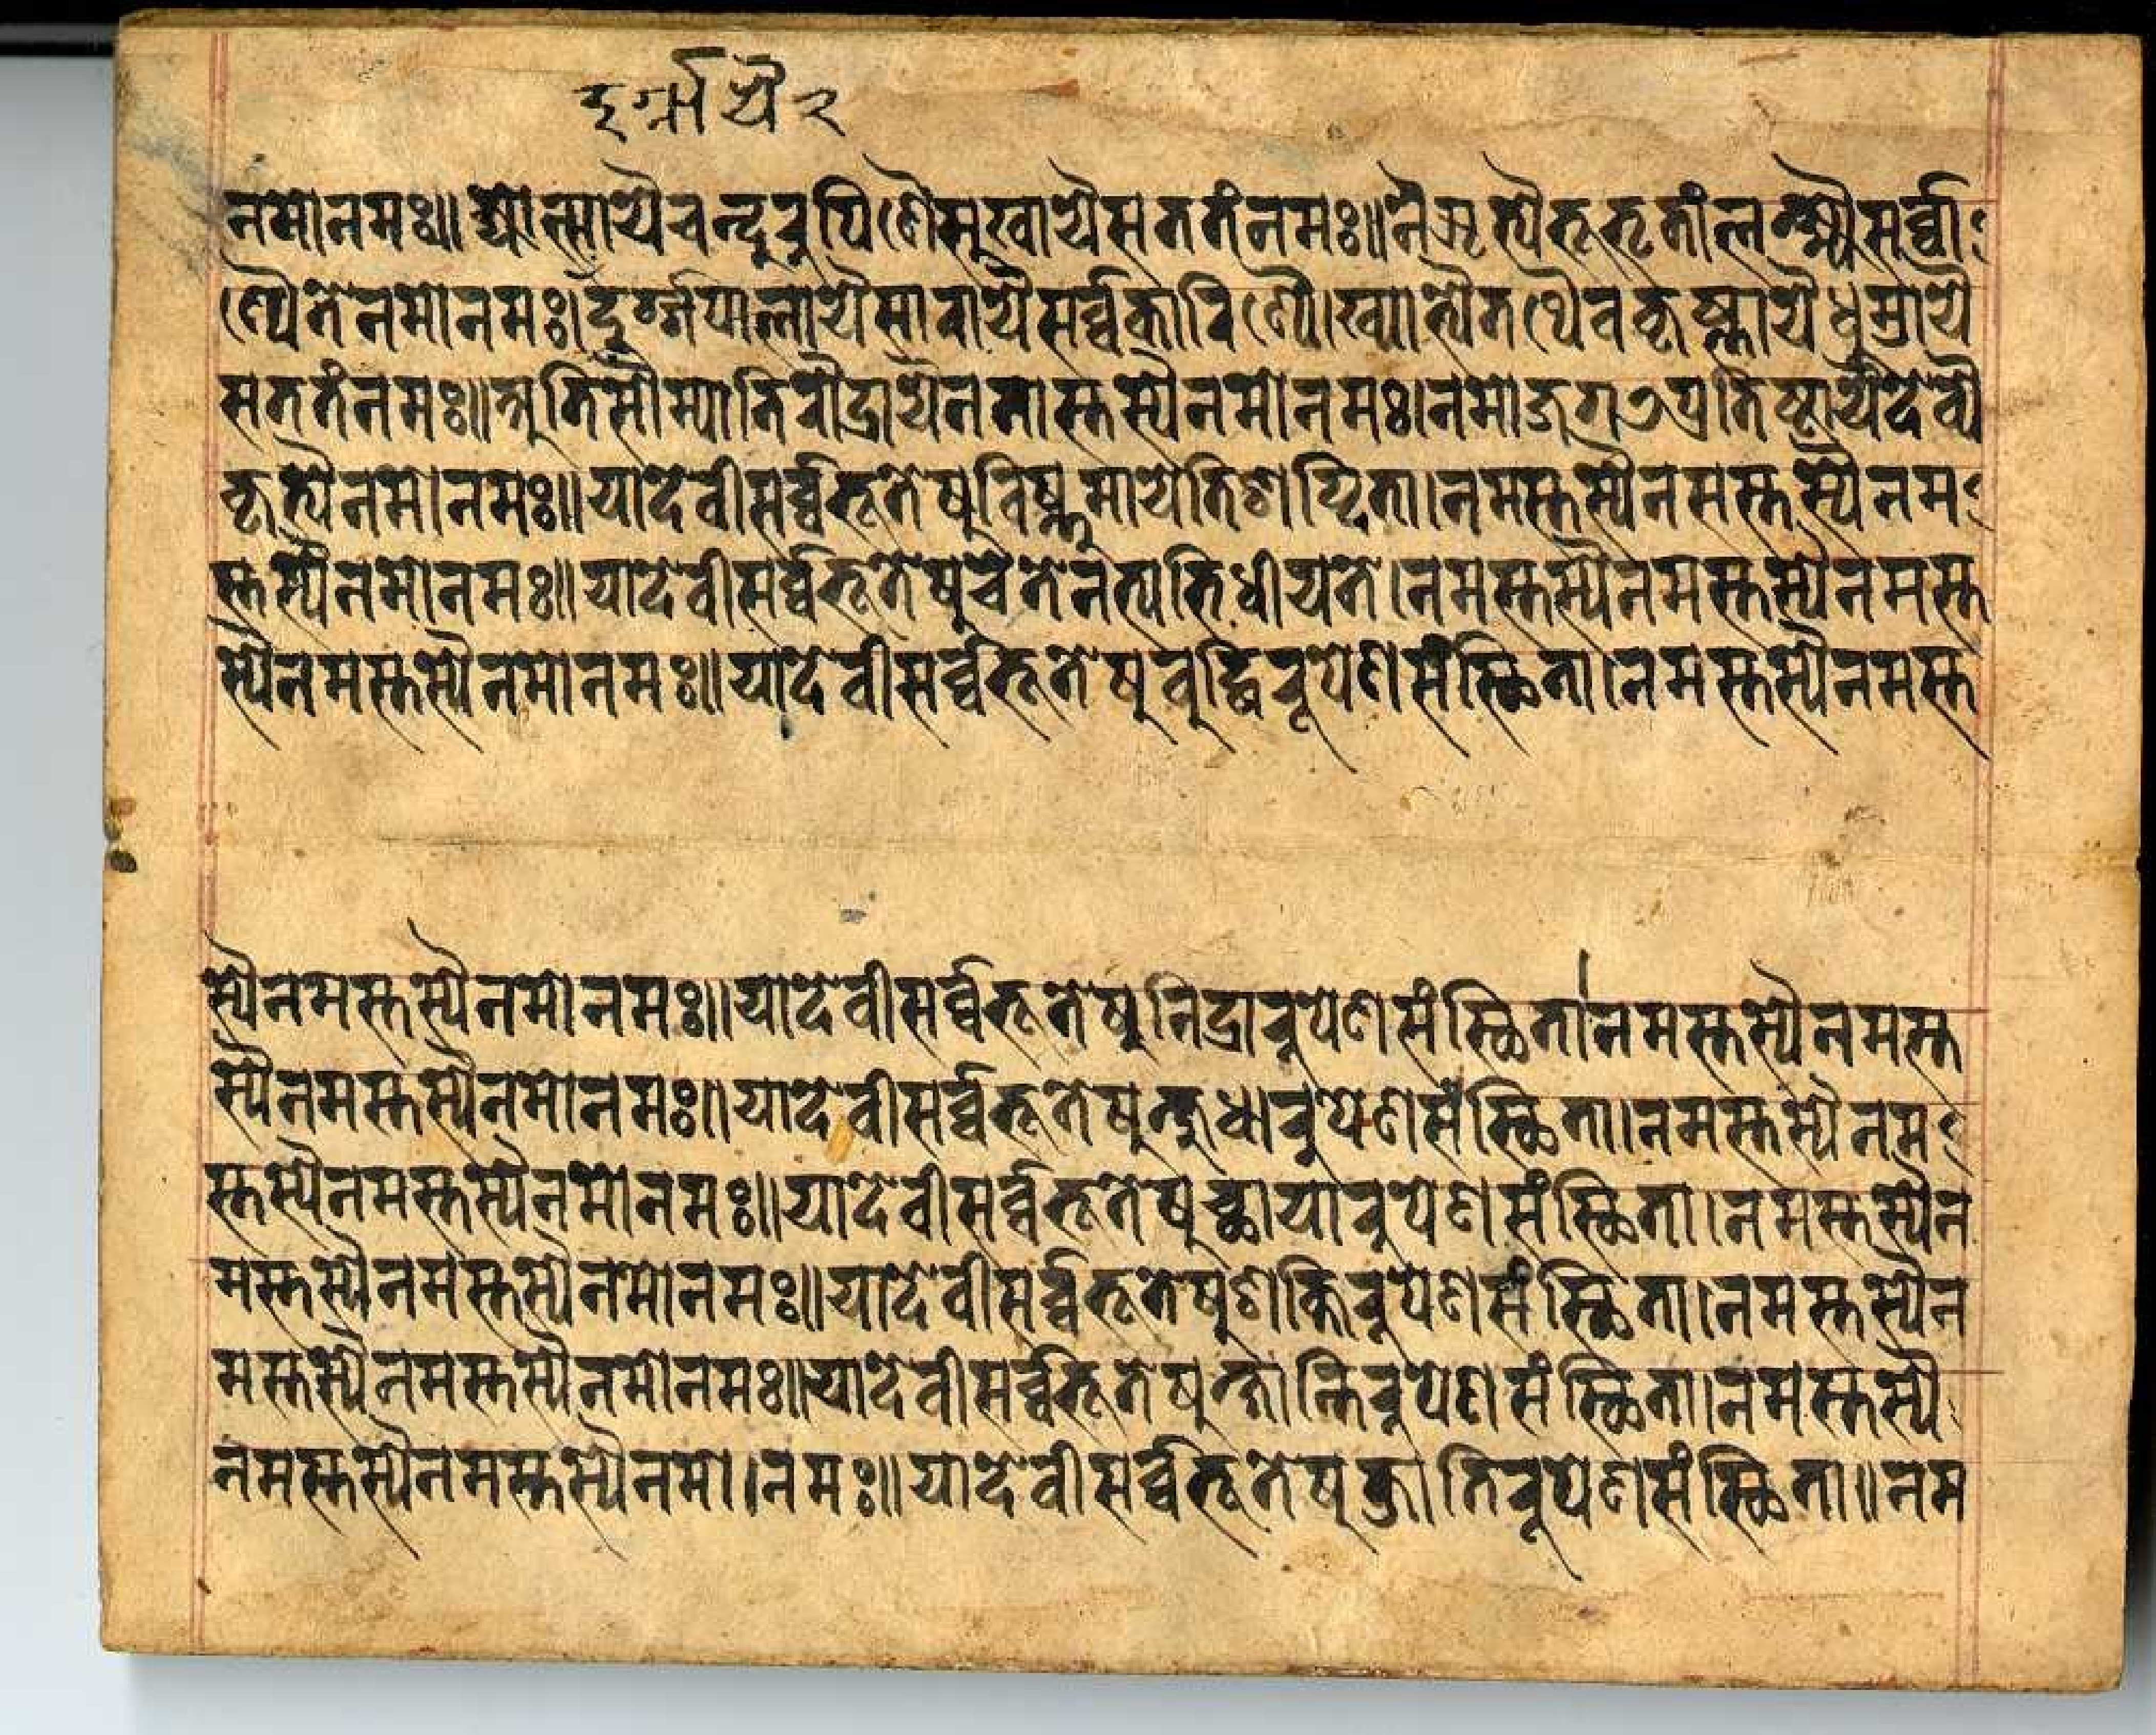 दुर्गायै२
नमोनमः॥ज्योत्स्नायैचन्द्ररुपिण्यैसुखायैसततंनमः॥नैऋत्यैभूभृतांलक्ष्म्यैसर्व्वा
ण्यैतेनमोनमः।दुर्ग्गपालायैसारायैसर्व्वकारिण्यै।ख्यात्यैतथैवकृष्णायैधुम्रायै
सततंनमः॥अतिसौम्यातिरौद्रायैनतास्तस्यैनमोनमः।नमोजगत्प्रतिष्टायैदेव्यै
कृत्यैनमोनमः॥यादेवीसर्व्वभूतेषुविष्णुमायेतिशब्दिता।नमस्तस्यैनमस्तस्यैनम
स्तस्यैनमोनमः॥यादेवीसर्व्वभूतेषुचेतेनत्यभिधीयते।नमस्तस्यैनमस्तस्यैनमस्त
स्यैनमस्तस्यैनमोनमः॥यादेवीसर्व्वभूतेषुबुद्धिरूपेणसंस्थिता।नमस्तस्यैनमस्त
स्यैनमस्तस्यैनमोनमः॥यादेवीसर्व्वभूतेषुनिद्रारुपेणसंस्थिता।नमस्तस्यैनमस्त
स्यैनमस्तस्यैनमोनमः॥यादेवीसर्व्वभूतेषुक्षुधारुपेणसंस्थिता।नमस्तस्यैनम
स्तस्यैनमस्तस्यैनमोनमः॥यादेवीसर्व्वभूतेषुच्छायारुपेणसंस्थिता।नमस्तस्यैन
मस्तस्यैनमस्तस्यैनमोनमः॥यादेवीसर्व्वभूतेषुशक्तिरुपेणसंस्थिता।नमस्तस्यैन
मस्तस्यैनमस्तस्यैनमोनमः॥यादेवीसर्व्वभूतेषुक्षान्तिरुपेणसंस्थिता।नमस्तस्यै
नमस्तस्यैनमस्तस्यैनमो।नमः॥यादेवीसर्व्वभूतेषुजातिरूपेणसंस्थिता॥नम